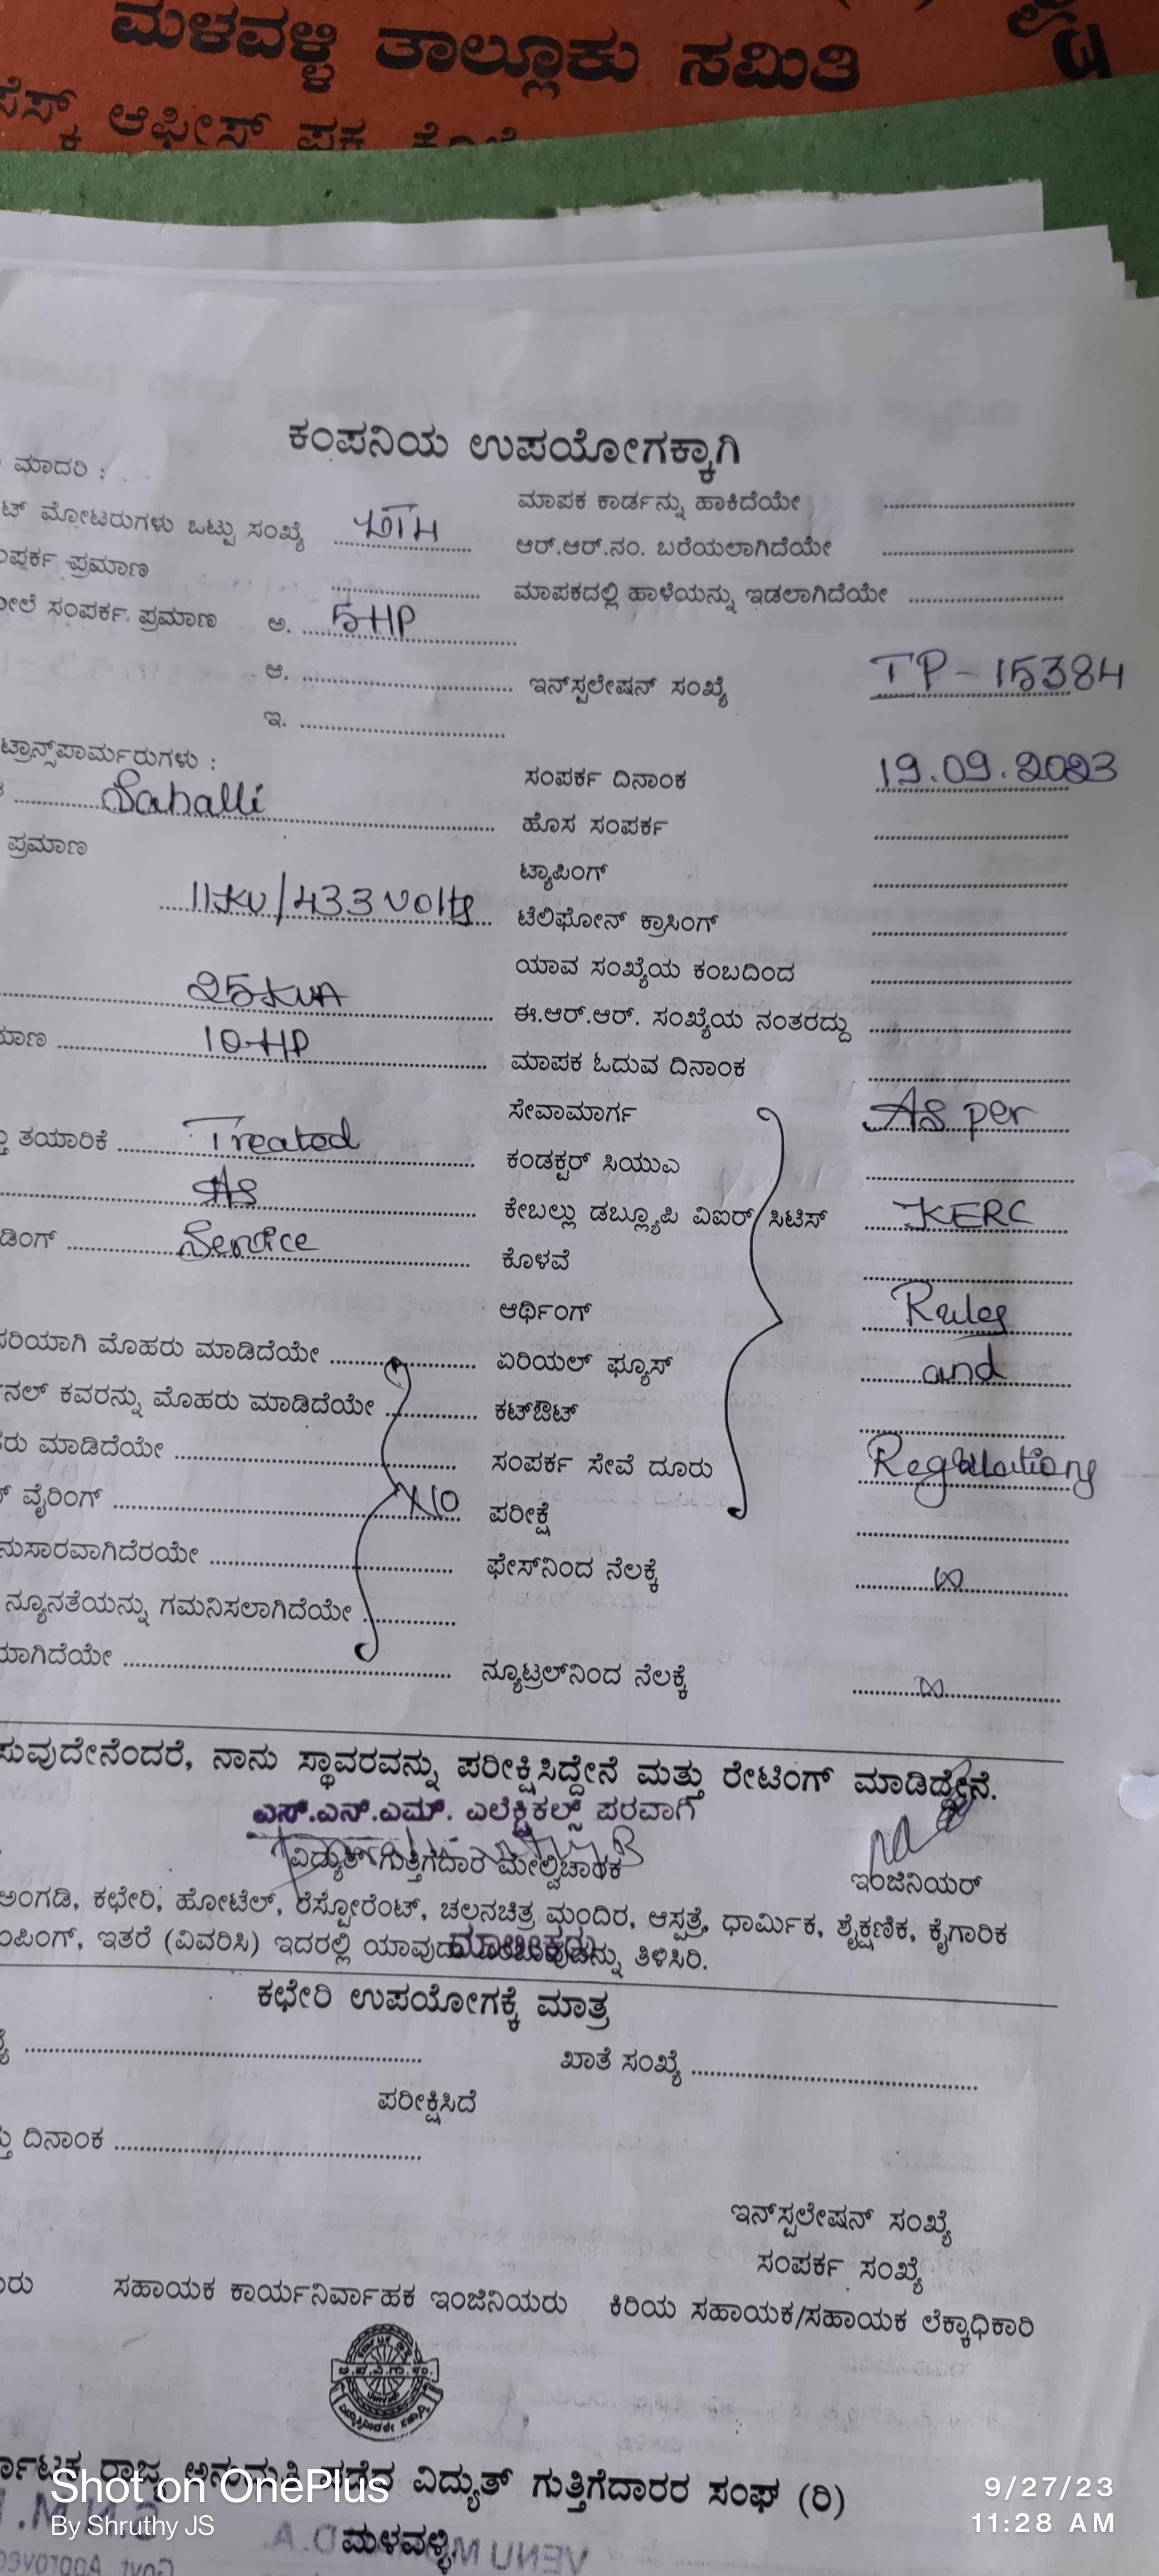 ಮಳವಳ್ಳಿ ತಾಲ್ಲೂಕು ಸಮಿತಿ
ಆಫೀಸ್
ಕಂಪನಿಯ ಉಪಯೋಗಕ್ಕಾಗಿ
ಮಾದರಿ :
ಮಾಪಕ ಕಾರ್ಡನ್ನು ಹಾಕಿದೆಯೇ
ಮೋಟರುಗಳು ಒಟ್ಟು ಸಂಖ್ಯೆ
ಆರ್.ಆರ್.ನಂ. ಬರೆಯಲಾಗಿದೆಯೇ
ಪ್ರಮಾಣ
ಮಾಪಕದಲ್ಲಿ ಹಾಳೆಯನ್ನು ಇಡಲಾಗಿದೆಯೇ
ಸಂಪರ್ಕ ಪ್ರಮಾಣ ಅ. 5HP
ಆ.
ಇನ್‌ಸ್ಟಲೇಷನ್ ಸಂಖ್ಯೆ TP-15384
ಇ.
ಟ್ರಾನ್ಸ್‌ಪಾರ್ಮರುಗಳು :
ಸಂಪರ್ಕ ದಿನಾಂಕ 19.09.2023
ಹೊಸ ಸಂಪರ್ಕ
ಪ್ರಮಾಣ
ಟ್ಯಾಪಿಂಗ್
11KV/433 Volts
ಟೆಲಿಫೋನ್ ಕ್ರಾಸಿಂಗ್
ಯಾವ ಸಂಖ್ಯೆಯ ಕಂಬದಿಂದ
25KVA
ಈ.ಆರ್.ಆರ್. ಸಂಖ್ಯೆಯ ನಂತರದ್ದು
10-HP
ಮಾಪಕ ಓದುವ ದಿನಾಂಕ
ಸೇವಾಮಾರ್ಗ As per
ತಯಾರಿಕೆ Treated
ಕಂಡಕ್ಟರ್ ಸಿಯುಎ
As
ಕೇಬಲ್ಲು ಡಬ್ಲ್ಯೂಪಿ ವಿಐರ್ ಸಿಟಿಸ್ KERC
Service
ಕೊಳವೆ
ಆರ್ಥಿಂಗ್ Rules
ಸರಿಯಾಗಿ ಮೊಹರು ಮಾಡಿದೆಯೇ
ಏರಿಯಲ್ ಫ್ಯೂಸ್ and
ಕವರನ್ನು ಮೊಹರು ಮಾಡಿದೆಯೇ
ಕಟ್‌ಔಟ್
ಮಾಡಿದೆಯೇ
ಸಂಪರ್ಕ ಸೇವೆ ದೂರು Regulations
ವೈರಿಂಗ್ No
ಪರೀಕ್ಷೆ
ಫೇಸ್‌ನಿಂದ ನೆಲಕ್ಕೆ ∞
ನ್ಯೂನತೆಯನ್ನು ಗಮನಿಸಲಾಗಿದೆಯೇ
ನ್ಯೂಟ್ರಲ್‌ನಿಂದ ನೆಲಕ್ಕೆ ∞
ನಾನು ಸ್ಥಾವರವನ್ನು ಪರೀಕ್ಷಿಸಿದ್ದೇನೆ ಮತ್ತು ರೇಟಿಂಗ್ ಮಾಡಿದ್ದೇನೆ.
ಎಸ್.ಎನ್.ಎಮ್. ಎಲೆಕ್ಟ್ರಿಕಲ್ಸ್ ಪರವಾಗಿ
ವಿದ್ಯುತ್ ಗುತ್ತಿಗೆದಾರ ಮೇಲ್ವಿಚಾರಕ
ಇಂಜಿನಿಯರ್
ಅಂಗಡಿ, ಕಛೇರಿ, ಹೋಟೆಲ್, ರೆಸ್ಟೋರೆಂಟ್, ಚಲನಚಿತ್ರ ಮಂದಿರ, ಆಸ್ಪತ್ರೆ, ಧಾರ್ಮಿಕ, ಶೈಕ್ಷಣಿಕ, ಕೈಗಾರಿಕ
ಇತರೆ (ವಿವರಿಸಿ) ಇದರಲ್ಲಿ ತಿಳಿಸಿರಿ.
ಕಛೇರಿ ಉಪಯೋಗಕ್ಕೆ ಮಾತ್ರ
ಖಾತೆ ಸಂಖ್ಯೆ
ಪರೀಕ್ಷಿಸಿದೆ
ದಿನಾಂಕ
ಇನ್‌ಸ್ಟಲೇಷನ್ ಸಂಖ್ಯೆ
ಸಂಪರ್ಕ ಸಂಖ್ಯೆ
ಸಹಾಯಕ ಕಾರ್ಯನಿರ್ವಾಹಕ ಇಂಜಿನಿಯರು ಕಿರಿಯ ಸಹಾಯಕ/ಸಹಾಯಕ ಲೆಕ್ಕಾಧಿಕಾರಿ
ರಾಜ್ಯ ಅನುಮತಿ ಪಡೆದ ವಿದ್ಯುತ್ ಗುತ್ತಿಗೆದಾರರ ಸಂಘ (ರಿ)
ಮಳವಳ್ಳಿ
Shot on OnePlus
By Shruthy JS
9/27/23
11:28 AM